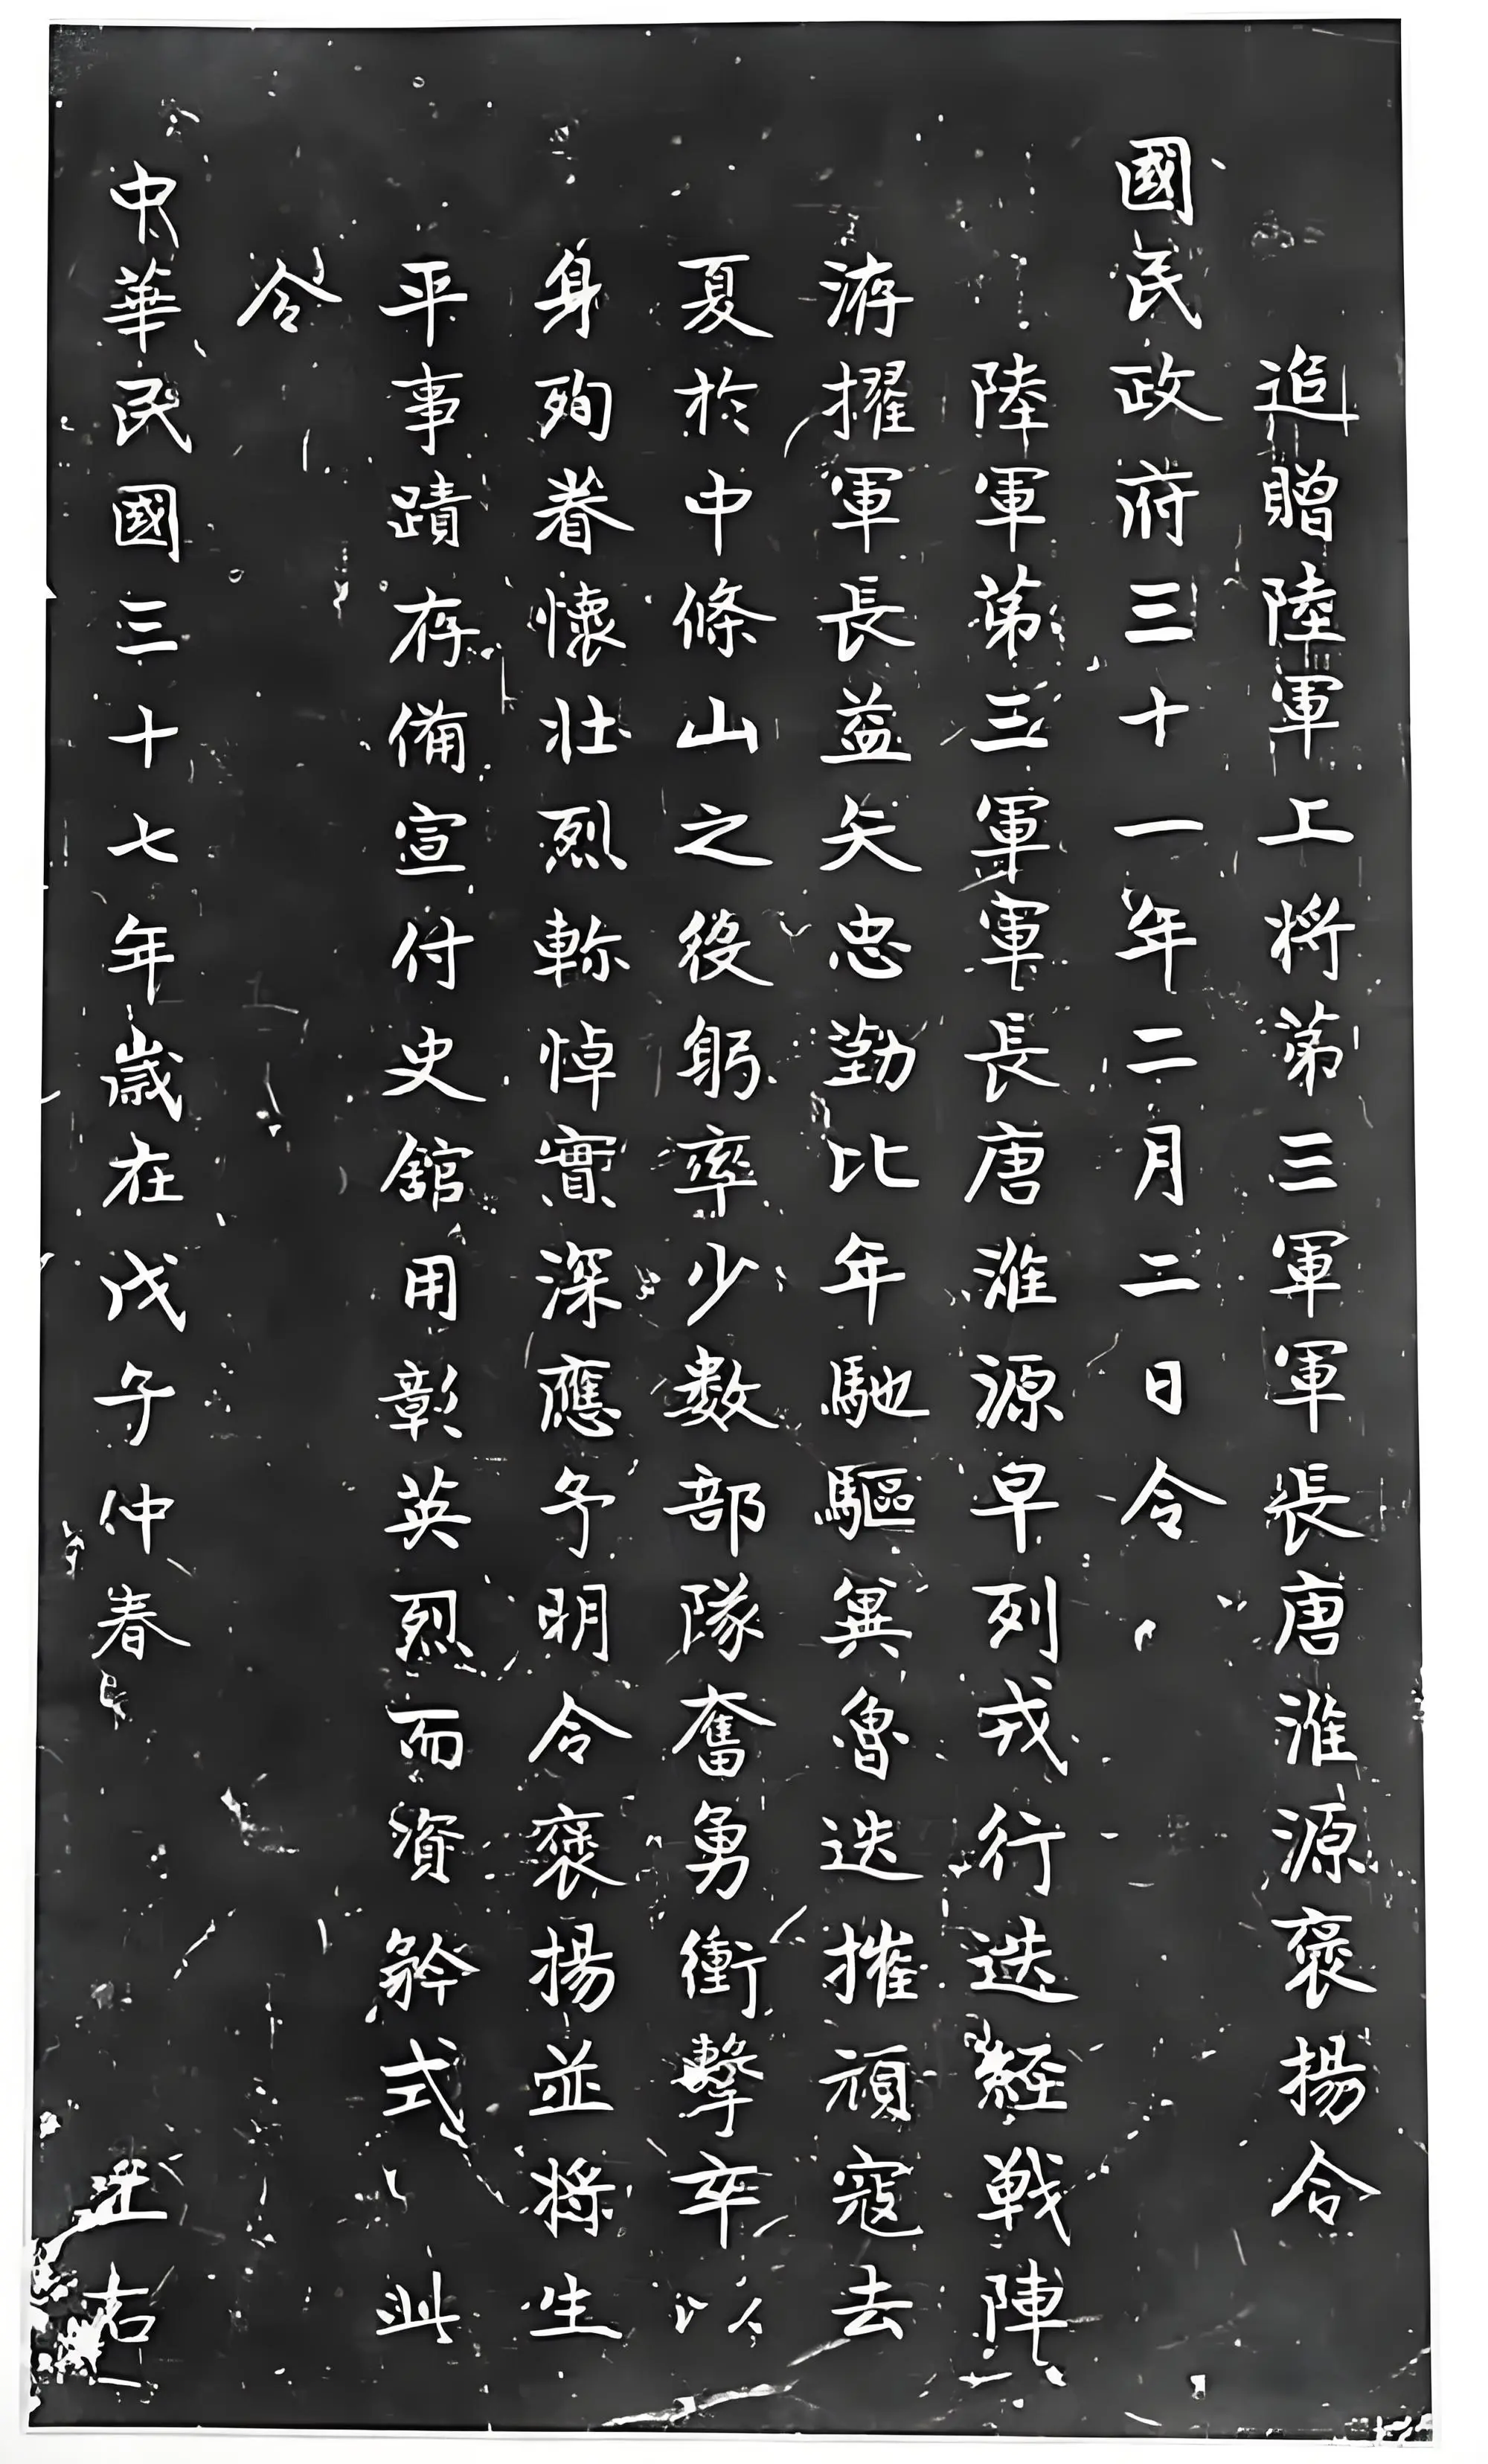 追贈陸軍上將第三軍軍長唐淮源褒揚令
國民政府三十一年二月二日令
陸軍第三軍軍長唐淮源早列戎行迭經戰陣
洊擢軍長益矢忠勤比年馳驅冀魯迭摧頑寇去
夏於中條山之役躬率少數部隊奮勇衝擊卒以
身殉眷懷壯烈軫悼實深應予明令褒揚並將生
平事蹟存備宣付史館用彰英烈而資矜式此
令
中華民國三十七年歲在戊子仲春
右